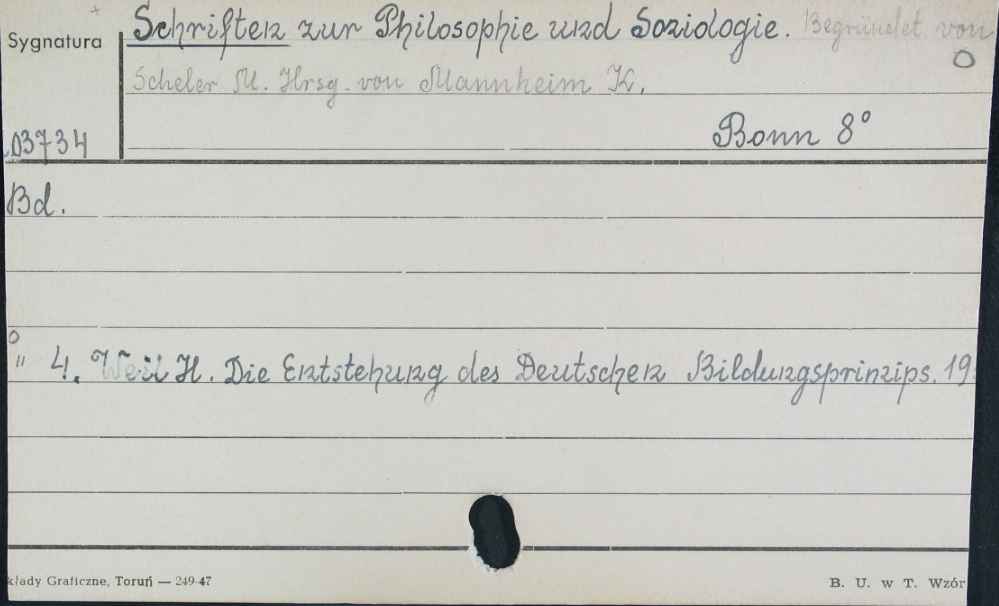 Sygnatura
Schriften zur Philosophie und Soziologie. Begründet von
Scheler M. Hrsg. von Mannheim K.
03734
Bonn 8°
Bd.
" 4. Weil H. Die Entstehung des Deutschen Bildungsprinzips. 19
kłady Graficzne, Toruń — 249-47
B. U. w T. Wzór